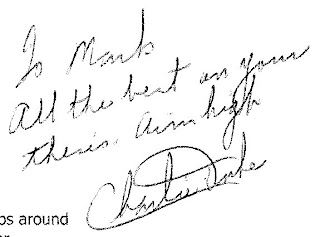 To Mark
All the best on your
thesis. Aim high
Charlie
os around